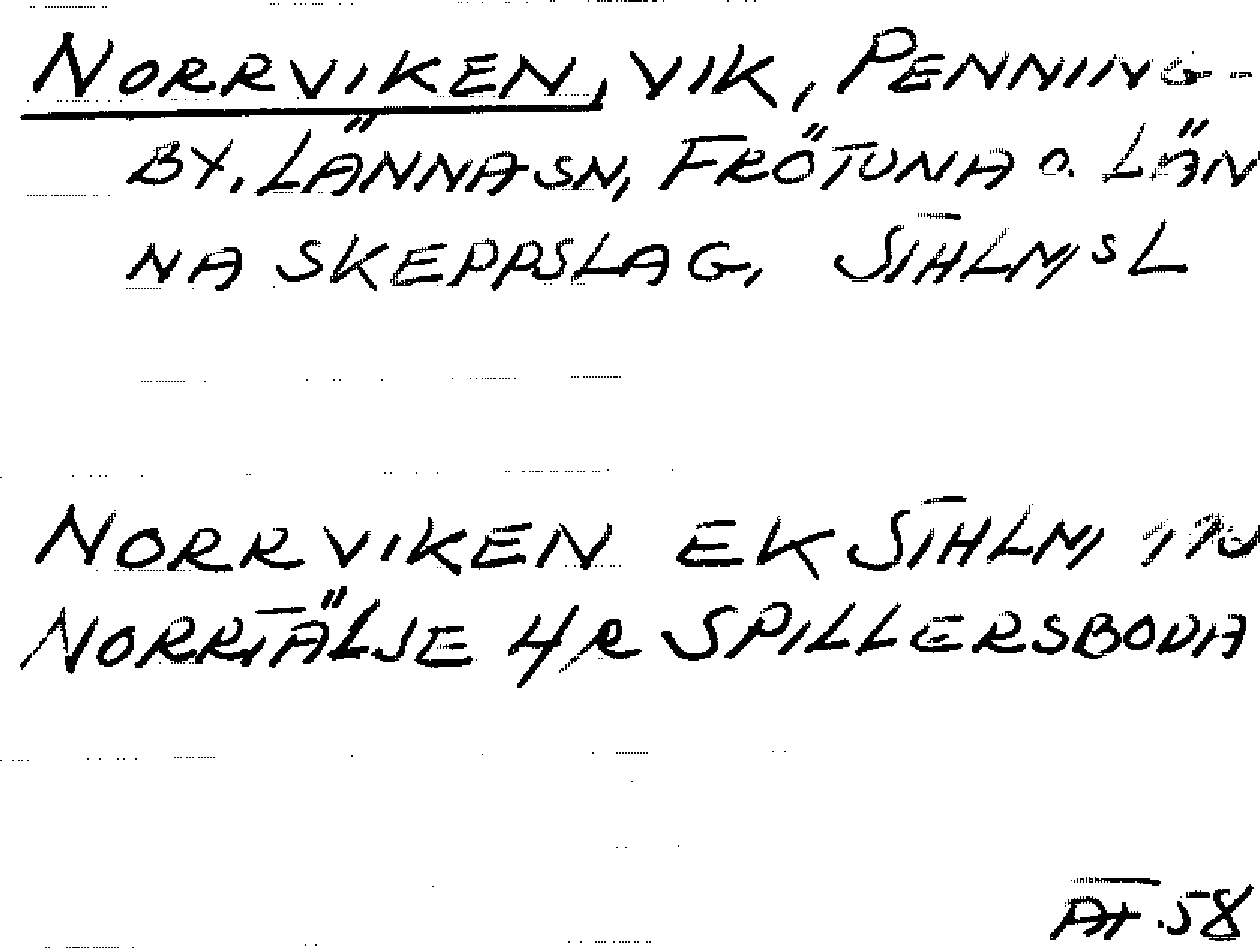 NORRVIKEN, VIK, PENNING-
BY, LÄNNA SN, FRÖTUNA O. LÄN
NA SKEPPSLAG, STHLMS L
NORRVIKEN EK STHLM
NORRTÄLJE 4R SPILLERSBODA
.58